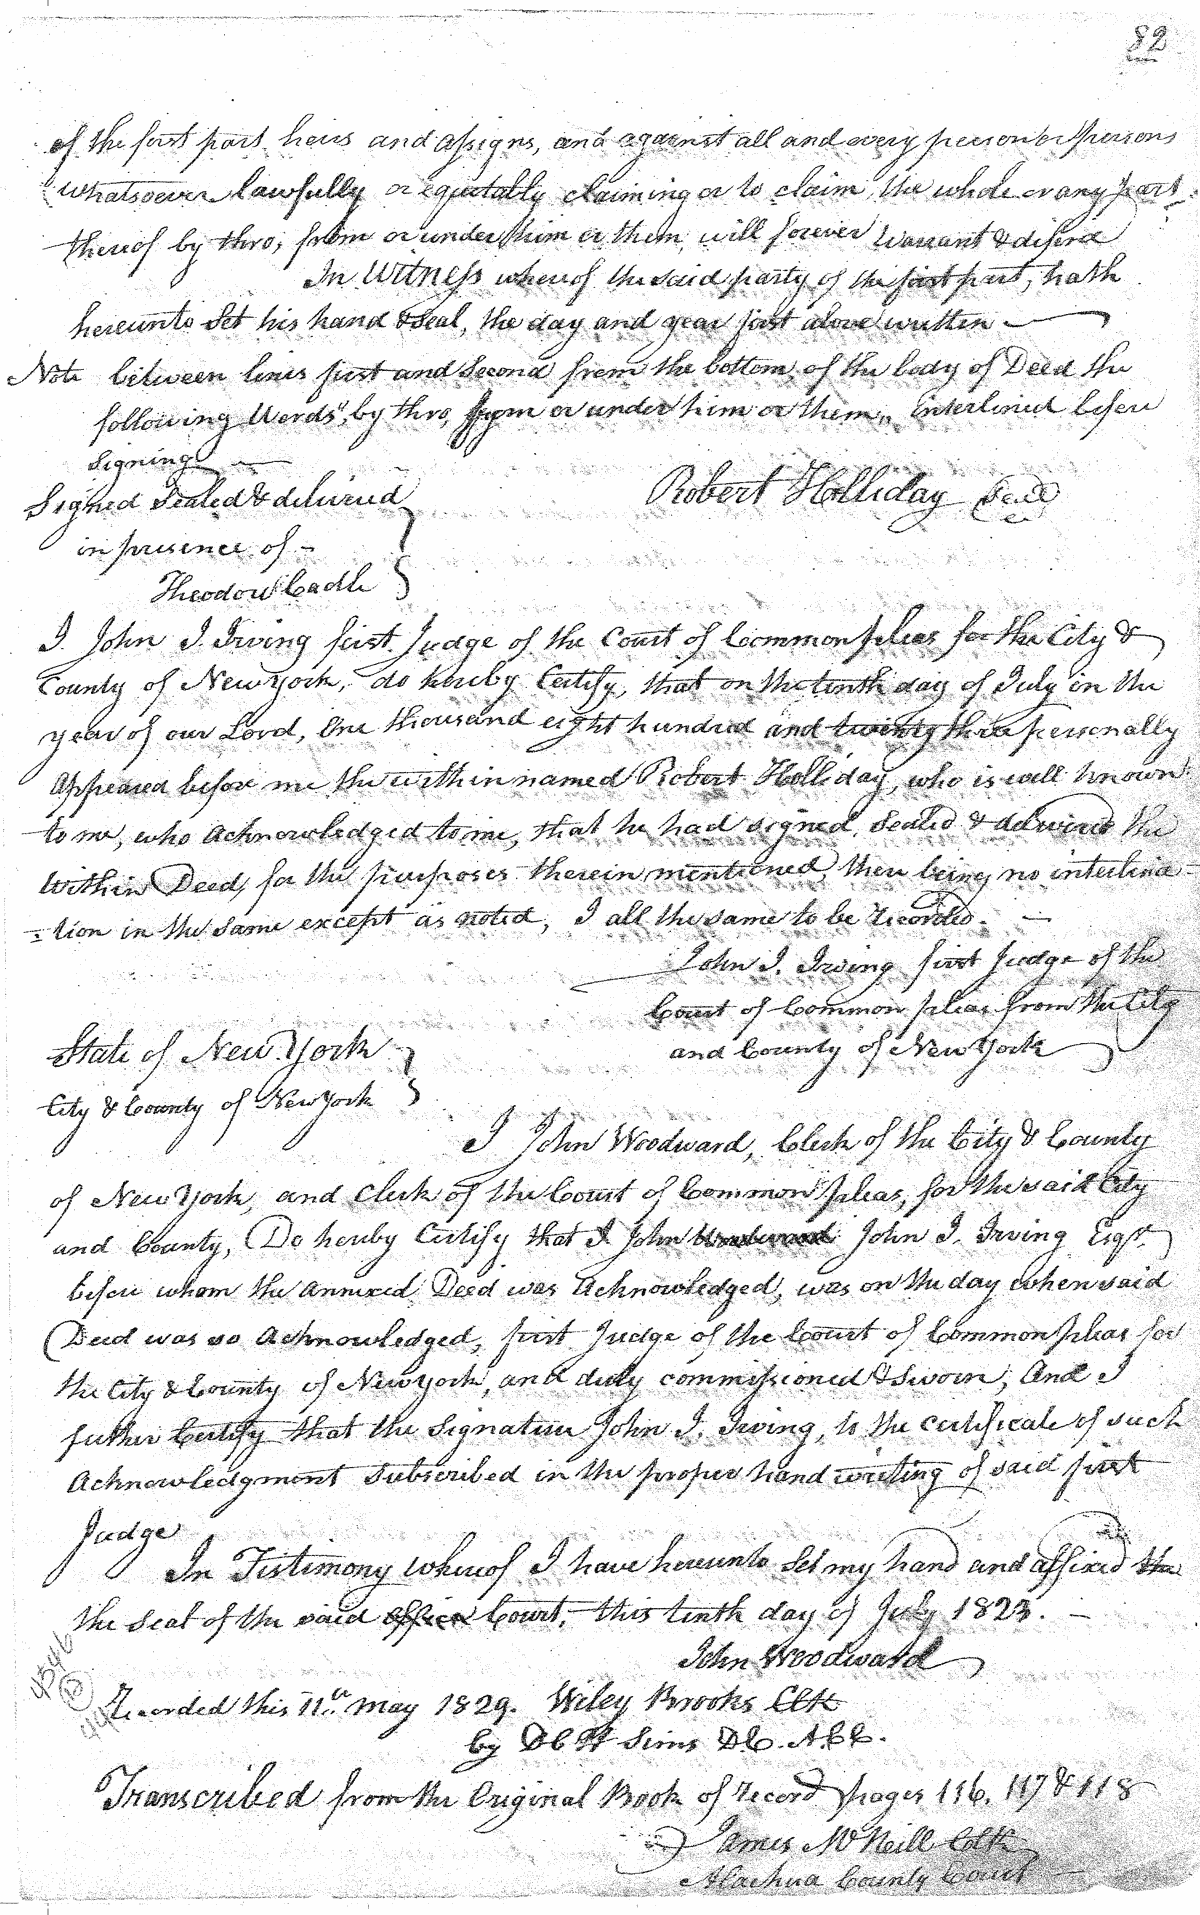 82
of the first part heirs and assigns, and against all and every person or persons
whatsoever lawfully or equitably claiming or to claim, the whole or any part
thereof by thro, from or under him or them, will forever Warrant & defend
In Witness whereof the said party of the first part, hath
hereunto Set his hand & Seal, the day and year first above written
Note between lines first and Second from the bottom, of the body of Deed the
following Words "by thro, from or under him or them" interlined before
signing
Signed Sealed & delivered
Robert Holliday Seal
in presence of -
Theodore Cadle
I. John I. Irving first Judge of the Court of Common pleas for the City &
County of New York, do hereby Certify, that on the tenth day of July in the
year of our Lord, One thousand eight hundred and twenty three personally
Appeared before me the within named Robert Holliday, who is well known
to me, who acknowledged to me, that he had signed, Sealed & delivered the
Within Deed, for the purposes therein mentioned, there being no interlinea-
=tion in the same except as noted, I all the same to be recorded. —
John I. Irving first Judge of the
Court of Common pleas from the City
and County of New York
State of New York
City & County of New York
I John Woodward, Clerk of the City & County
of New York, and Clerk of the Court of Common pleas, for the said City
and County, Do hereby Certify that I John Woodward John I. Irving Esqr.
before whom the annexed Deed was Acknowledged, was on the day when said
Deed was so Acknowledged, first Judge of the Court of Common pleas for
the City & County of New york, and duly commissioned & Sworn, And I
futher Certify that the Signature John I. Irving, to the certificate of such
Acknowledgment Subscribed in the proper hand writing of said first
Judge
In Testimony whereof I have hereunto Set my hand and affixed the
the seal of the said office Court, this tenth day of July 1823. —
John Woodward
Recorded this 11th May 1829. Wiley Brooks Clk
by D C H Sims D.C. A.C.C.
Transcribed from the Original Book of record pages 116, 117 & 118
James McNeill Clk
Alachua County Court